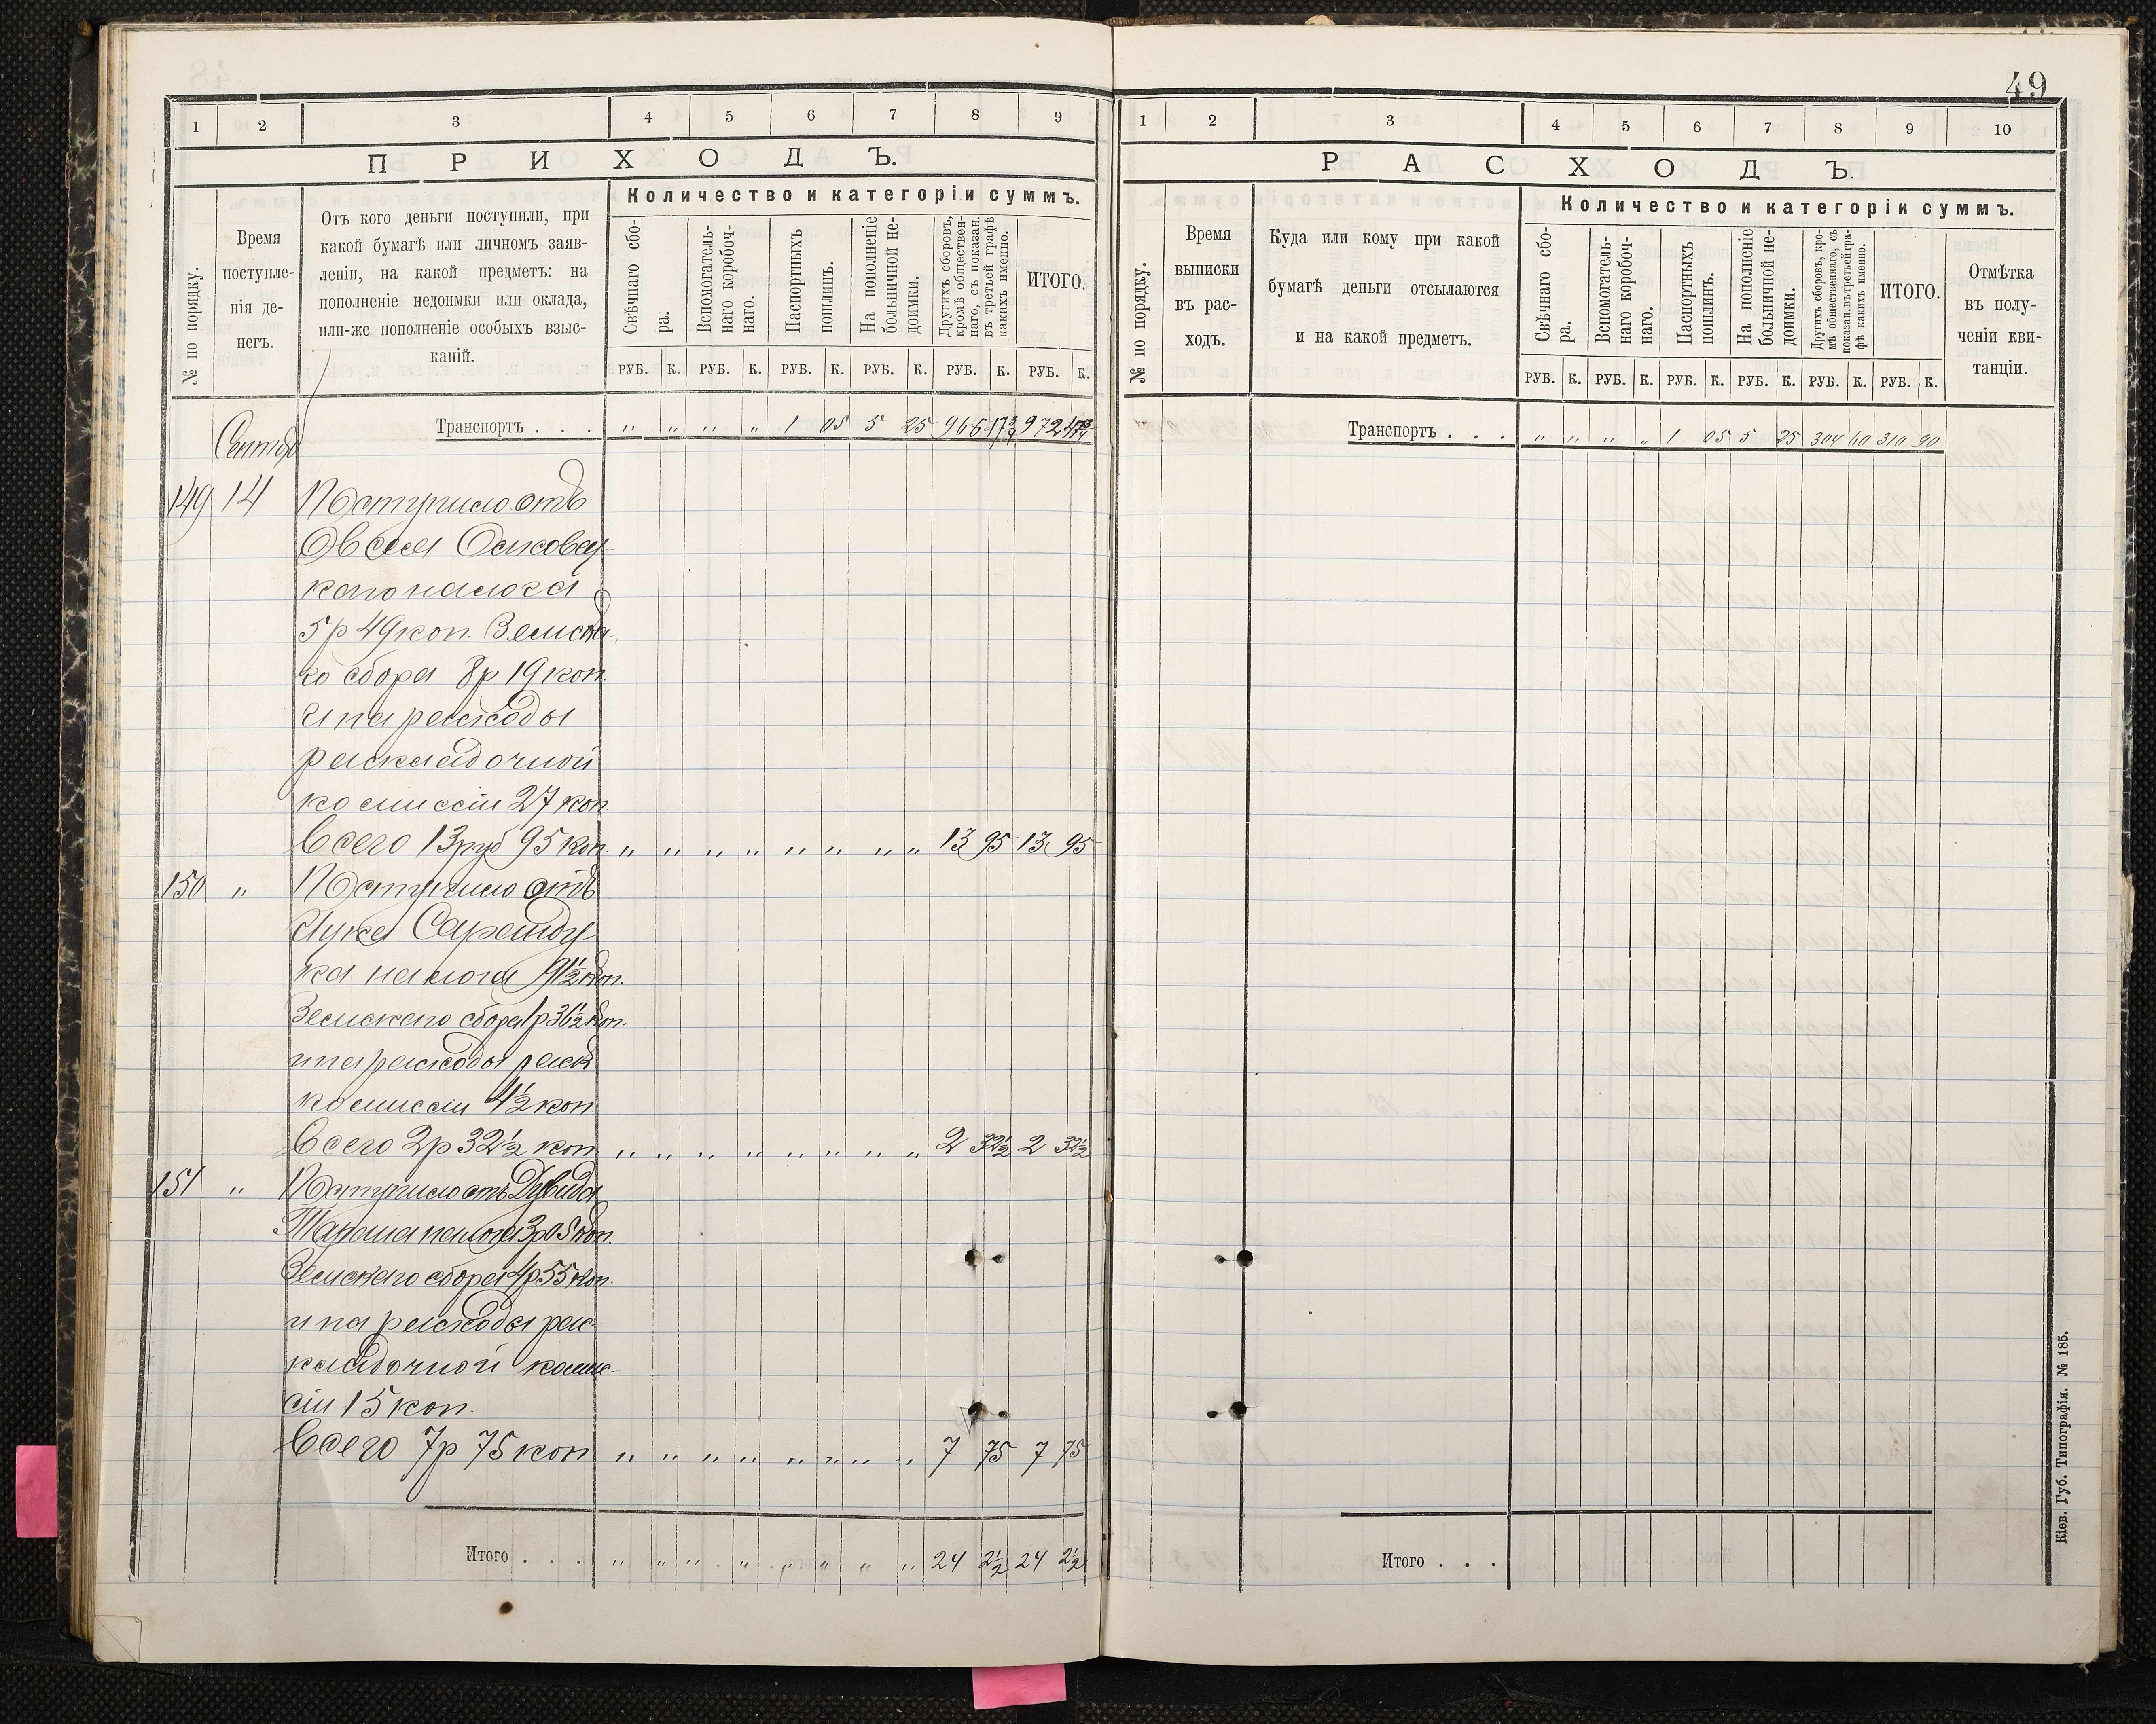 49
1 2 3 4 5 6 7 8 9
П Р И Х О Д Ъ.
№ по порядку.
Время поступле-
нія де-
негъ.
Отъ кого деньги поступили, при
какой бумагѣ или личномъ заяв-
леніи, на какой предметъ: на
пополненіе недоимки или оклада,
или-же пополненіе особыхъ взыс-
каній.
Количество и категоріи суммъ.
Свѣчнаго сбо-
ра.
Вспомогатель-
наго коробоч-
наго.
Паспортныхъ
пошлинъ.
На пополненіе
больничной не-
доимки.
Другихъ сборовъ,
кромѣ обществен-
наго, съ показан.
въ третьей графѣ
какихъ именно.
ИТОГО.
РУБ. К. РУБ. К. РУБ. К. РУБ. К. РУБ. К. РУБ. К.
Транспортъ . . . „ „ „ „ 1 05 5 25 966 17¾ 972 47¾
Сентяб
149 14 Поступило отъ
Овсея
налога
5р 49 коп. Земска
го сбора 8р 19 коп
и на расходы
раскладочной
комиссіи 27 коп.
Всего 13 руб 95 коп. „ „ „ „ „ „ „ „ 13 95 13 95
150 „ Поступило отъ
ка налога 91½ коп.
Земскаго сбора 1р 36½ коп.
и на расходы раск
комиссіи 4½ коп
Всего 2р 32½ коп „ „ „ „ „ „ „ „ 2 32½ 2 32½
151 „ Поступило отъ Дувида
налога 3р 05 коп.
Земскаго сбора 4р 55 коп.
и на расходы рас-
кладочной комис-
сіи 15 коп.
Всего 7р 75 коп „ „ „ „ „ „ „ „ 7 75 7 75
Итого . . . „ „ „ „ „ „ „ „ 24 2½ 24 2½
1 2 3 4 5 6 7 8 9 10
Р А С Х О Д Ъ.
№ по порядку.
Время
выписки
въ рас-
ходъ.
Куда или кому при какой
бумагѣ деньги отсылаются
и на какой предметъ.
Количество и категоріи суммъ.
Свѣчнаго сбо-
ра.
Вспомогатель-
наго коробоч-
наго.
Паспортныхъ
пошлинъ.
На пополненіе
больничной не-
доимки.
Другихъ сборовъ, кро-
мѣ общественнаго, съ
показан. въ третьей гра-
фѣ какихъ именно.
ИТОГО.
Отмѣтка
въ полу-
ченіи кви-
танціи.
РУБ. К. РУБ. К. РУБ. К. РУБ. К. РУБ. К. РУБ. К.
Транспортъ . . . „ „ „ „ 1 05 5 25 304 60 310 90
Итого . . .
Кіев. Губ. Типографія. № 185.